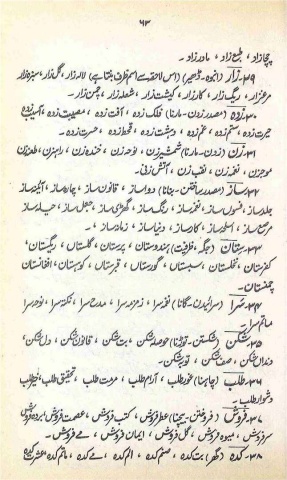 ۶۳
چچازاد، طبع زاد، مادر زاد۔
۲۹۔ زار (انبوہ۔ ڈھیر) (اس لاحقے سے اسم ظرف بنتا ہے) لالہ زار، گل زار، سبزہ زار
مرغزار، ریگ زار، کارزار، کشت زار، شعلہ زار، چمن زار۔
۳۰۔ زدہ (مصدر زدن۔ مارنا) فلک زدہ، آفت زدہ، مصیبت زدہ، آسیب زدہ
حیرت زدہ، ستم زدہ، غم زدہ، دہشت زدہ، قحط زدہ، حسرت زدہ۔
۳۱۔ زن (زدن۔ مارنا) شمشیر زن، نوحہ زن، خندہ زن، راہزن، طعنہ زن
موجزن، نغمہ زن، نقب زن، آتش زنی۔
۳۲۔ ساز (مصدر ساختن۔ بنانا) دوا ساز، قانون ساز، چارہ ساز، آئینہ ساز
جلد ساز، فسوں ساز، نغمہ ساز، رنگ ساز، گھڑی ساز، جعل ساز، حیلہ ساز
مرصع ساز، اسلحہ ساز، کارساز، دنیا ساز، زمانہ ساز۔
۳۳۔ ستان (جگہ، ظرفیت) ہندوستان، پرستان، گلستاں، ریگستان،
کفرستان، نخلستان، سیستان، گورستان، قبرستان، کوہستان، افغانستان
چمنستان۔
۳۴۔ سرا (سرائیدن۔ گانا) نغمہ سرا، زمزمہ سرا، مدح سرا، نکتہ سرا، نوحہ سرا
ماتم سرا۔
۳۵۔ شکن (شکستن۔ توڑنا) حوصلہ شکن، بت شکن، قانون شکن، دل شکن،
دنداں شکن، صف شکن، توبہ شکن۔
۳۶۔ طلب (چاہنا) غور طلب، آرام طلب، مروت طلب، تحقیق طلب، خیر طلب
دشوار طلب۔
۳۷۔ فروش (فروختن۔ بیچنا) عطر فروش، کتب فروش، عصمت فروش، بردہ فروش
سرفروش، میوہ فروش، گل فروش، ایمان فروش، مے فروش۔
۳۸۔ کدہ (گھر) بت کدہ، صنم کدہ، الم کدہ، مے کدہ، ماتم کدہ، عشرت کدہ